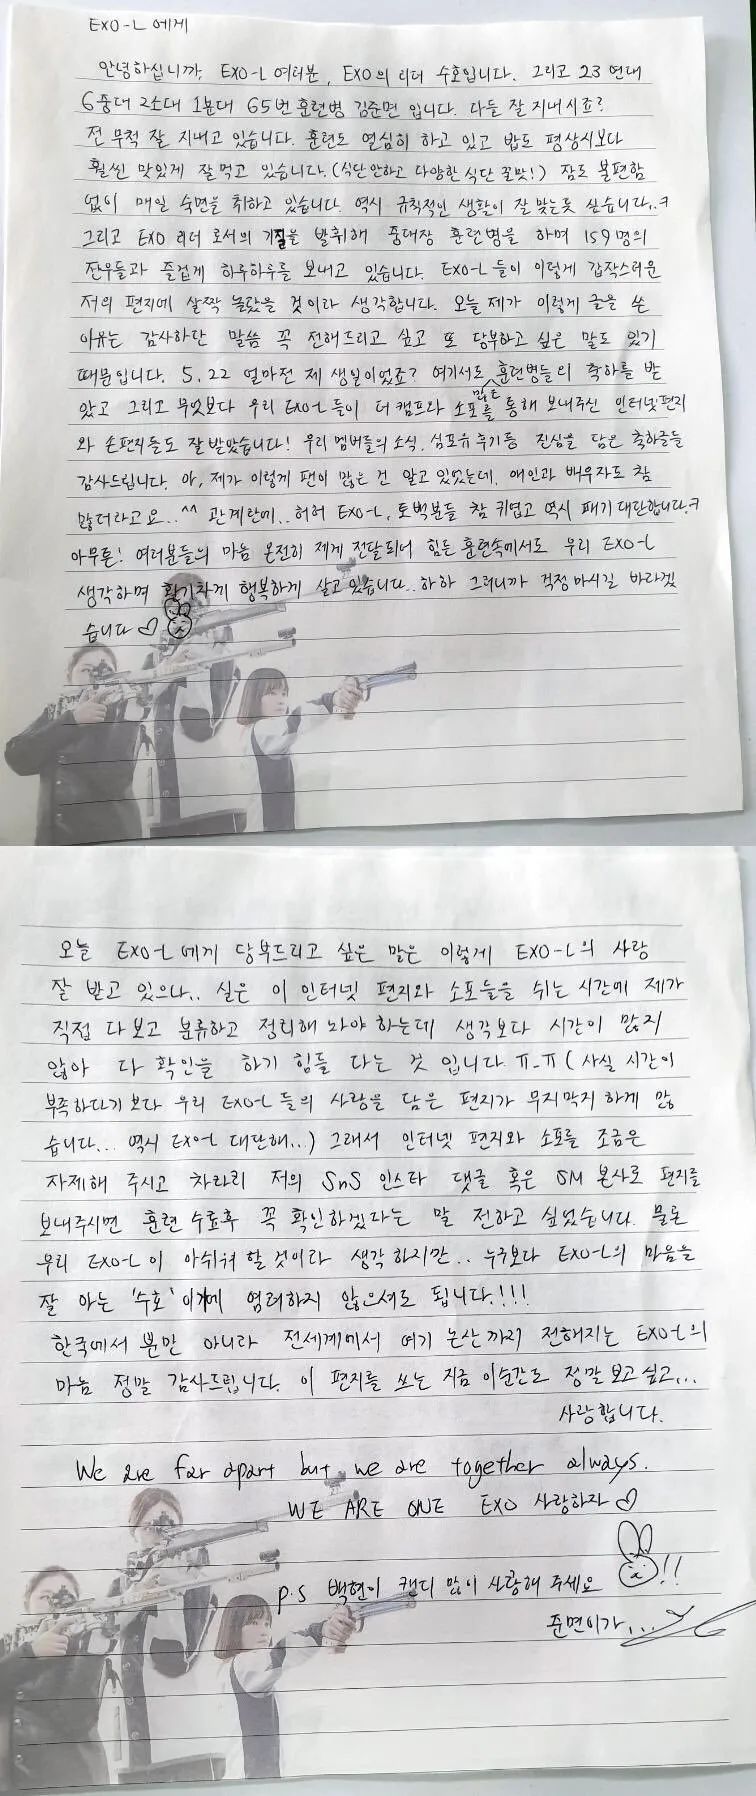 EXO-L 에게
안녕하십니까, EXO-L 여러분, EXO의 리더 수호입니다. 그리고 23연대
6중대 2소대 1분대 65번 훈련병 김준면 입니다. 다들 잘 지내시죠?
전 무척 잘 지내고 있습니다. 훈련도 열심히 하고 있고 밥도 평상시보다
훨씬 맛있게 잘먹고 있습니다.(식단안하고 다양한 식단 꿀맛!) 잠도 불편함
없이 매일 숙면을 취하고 있습니다. 역시 규칙적인 생활이 잘 맞는듯 싶습니다..ㅋ
그리고 EXO 리더 로서의 기질을 발휘해 중대장 훈련병을 하며 159명의
전우들과 즐겁게 하루하루를 보내고 있습니다. EXO-L 들이 이렇게 갑작스러운
저의 편지에 살짝 놀랐을 것이라 생각합니다. 오늘 제가 이렇게 글을 쓴
이유는 감사하단 말씀 꼭 전해드리고 싶고 또 당부하고 싶은 말도 있기
때문입니다. 5.22 얼마전 제 생일이었죠? 여기서도 많은 훈련병들의 축하를 받
았고 그리고 무엇보다 우리 EXO-L 들이 더캠프라 소포를 통해 보내주신 인터넷편지
와 손편지들도 잘 받았습니다! 우리 멤버들의 소식, 심포유 후기등 진심을 담은 축하글들
감사드립니다. 아, 제가 이렇게 팬이 많은 건 알고 있었는데, 애인과 배우자도 참
많더라고요..^^ 관계란에.. 허허 EXO-L, 토벅분들 참 귀엽고 역시 패기 대단합니다.ㅋ
아무튼! 여러분들의 마음 온전히 제게 전달되어 힘든 훈련속에서도 우리 EXO-L
생각하며 활기차게 행복하게 살고 있습니다.. 하하 그러니까 걱정 마시길 바라겠
습니다 ♡
오늘 EXO-L 에게 당부드리고 싶은 말은 이렇게 EXO-L의 사랑
잘 받고 있으나.. 실은 이 인터넷 편지와 소포들을 쉬는 시간에 제가
직접 다 보고 분류하고 정리해 놔야 하는데 생각보다 시간이 많지
않아 다 확인을 하기 힘들 다는 것 입니다. ㅠ_ㅠ (사실 시간이
부족하다기 보다 우리 EXO-L 들의 사랑을 담은 편지가 무지막지 하게 많
습니다... 역시 EXO-L 대단해...) 그래서 인터넷 편지와 소포를 조금은
자제해 주시고 차라리 저의 SnS 인스타 댓글 혹은 SM 본사로 편지를
보내주시면 훈련 수료후 꼭 확인하겠다는 말 전하고 싶었습니다. 물론
우리 EXO-L 이 아쉬워 할 것이라 생각 하지만.. 누구보다 EXO-L의 마음을
잘 아는 '수호'이기에 염려하지 않으셔도 됩니다!!!!
한국에서 뿐만 아니라 전세계에서 여기 논산까지 전해지는 EXO-L의
마음 정말 감사드립니다. 이 편지를 쓰는 지금 이순간도 정말 보고 싶고...
사랑합니다.
We are far apart but we are together always.
WE ARE ONE EXO 사랑하자 ♡
p.s 백현이 캔디 많이 사랑해 주세요 !!
준면이가...